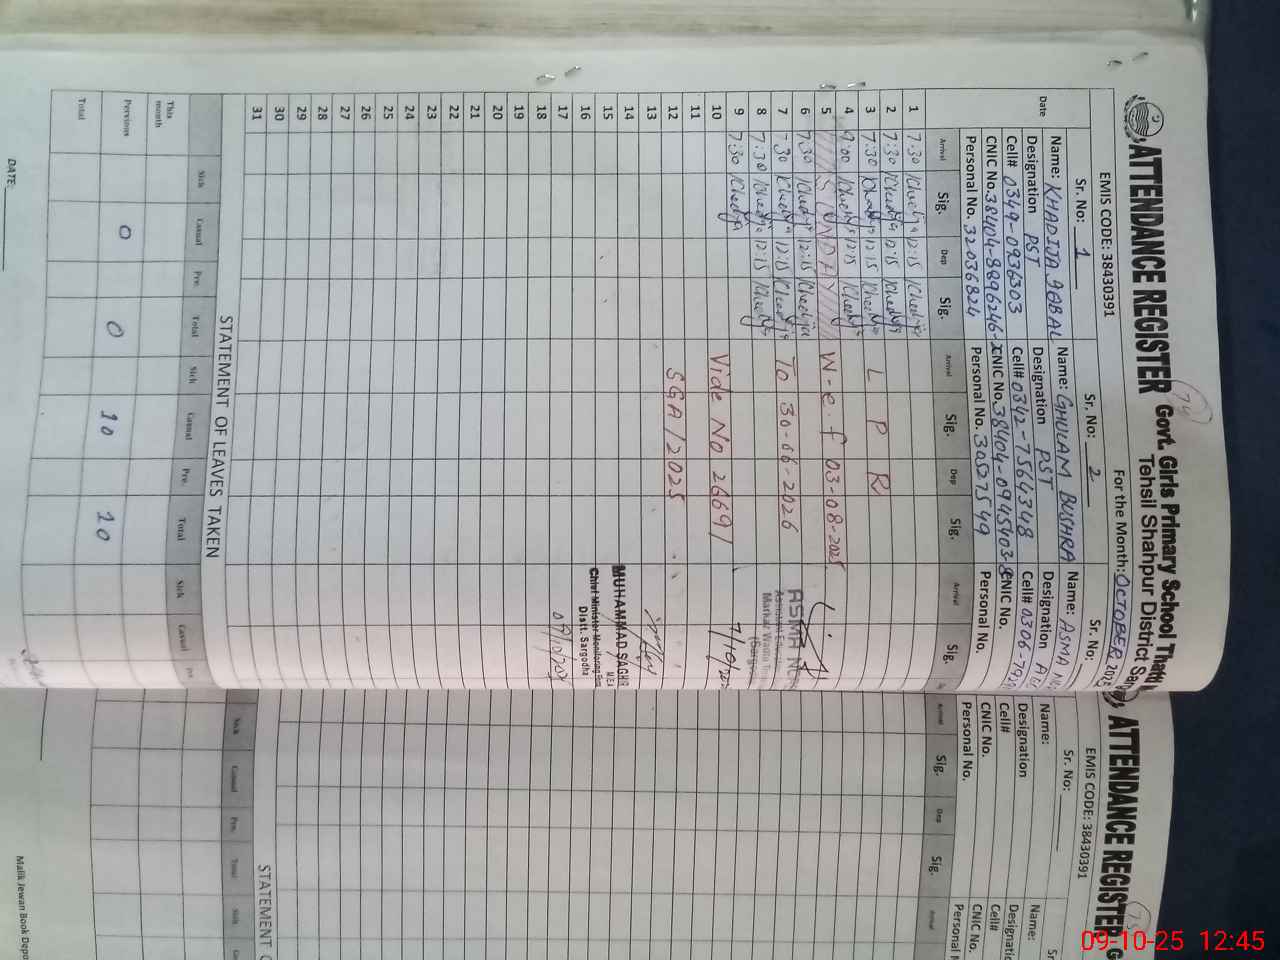 ATTENDANCE REGISTER Govt. Girls Primary School
Tehsil Shahpur District
EMIS CODE: 38430391
For the Month: OCTOBER, 2025
74
Sr. No: 1
Name: KHADIJA IQBAL
Designation PST
Cell# 0349-0936303
CNIC No. 38404-8896246-
Personal No. 32036824
Sr. No: 2
Name: GHULAM BUSHRA
Designation PST
Cell# 0342-7564348
CNIC No. 38404-0945403-8
Personal No. 30527549
Sr. No:
Name: ASMA
Designation
Cell# 0306-792
CNIC No.
Personal No.
Date Arrival Sig. Dep Sig. Arrival Sig. Dep Sig. Arrival Sig.
1 7:30 Khadija 12:15 Khadija
2 7:30 Khadija 12:15 Khadija
3 7:30 Khadija 12:15 Khadija L P R
4 9:00 Khadija 12:15 Khadija
5 SUNDAY W-e-f 03-08-2025
6 7:30 Khadija 12:15 Khadija
7 7:30 Khadija 12:15 Khadija To 30-06-2026
8 7:30 Khadija 12:15 Khadija
9 7:30 Khadija
10 Vide No 26691
11
12 SGA/2025
13
14
15
16
17
18
19
20
21
22
23
24
25
26
27
28
29
30
31
7/10/
MUHAMMAD SAGHIR
MEA
Chief Minister Monitoring
Distt. Sargodha
09/10/
STATEMENT OF LEAVES TAKEN
Sick Casual Pre. Total Sick Casual Pre. Total Sick Casual Pre
This month
Pervious 0 0 10 10
Total
DATE:
ATTENDANCE REGISTER
EMIS CODE: 38430391
75
Sr. No:
Name:
Designation
Cell#
CNIC No.
Personal No.
Name:
Cell#
CNIC No.
Arrival Sig. Dep Sig. Arrival
STATEMENT
Sick Casual Pre. Total Sick
Malik Jewan Book Depo
09-10-25 12:45